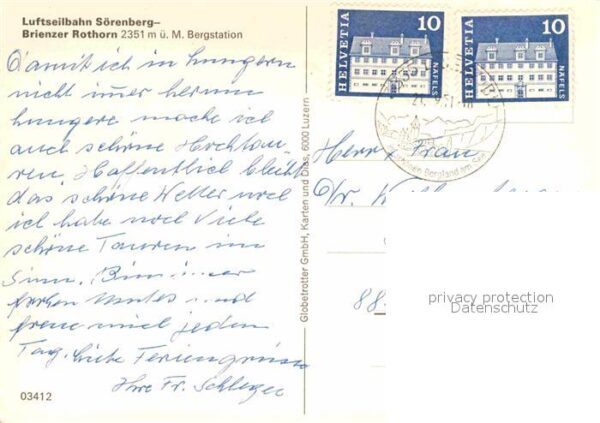 Luftseilbahn Sörenberg–
Brienzer Rothorn 2351 m ü. M. Bergstation
Damit ich in Lungern
nicht imer herum
hungere mache ich
auch schöne Hochtou-
ren. Hoffentlich bleibt
das schöne Wetter noch
ich habe noch Viele
schöne Touren im
Sinn. Bin immer
frohen Mutes und
freue mich jeden
Tag. Liebe Feriengrüsse
Ihre Fr. Schlegel
03412
Globetrotter GmbH, Karten und Dias, 6000 Luzern
HELVETIA 10 NÄFELS
HELVETIA 10 NÄFELS
Bergland am See
Herr Frau
88
privacy protection
Datenschutz